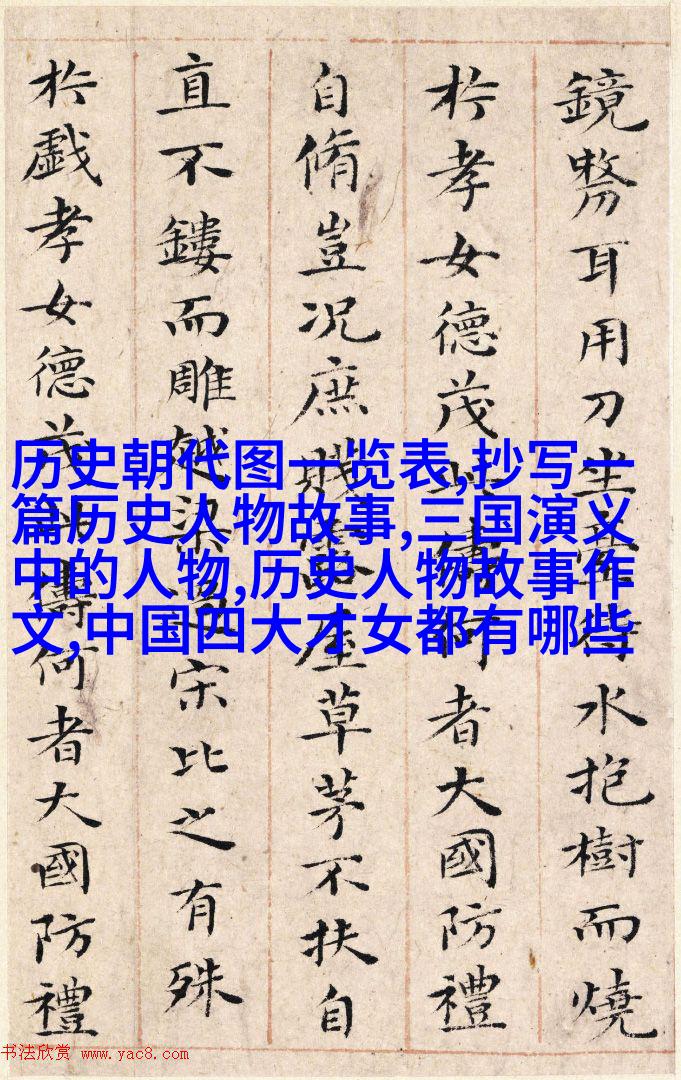 鏡剺耳用刀坐臺待水抱樹而燒
扵孝女德茂此儔何者大國防禮
自脩豈况庶賤露屋草茅不扶自
直不鏤而雕越梁過宋比之有殊
扵戲孝女德茂此儔何者大國防禮
历史朝代图一览表,抄写一
篇历史人物故事,三国演义
中的人物,历史人物故事作
文,中国四大才女都有哪些
书法欣赏 www.yac8.com